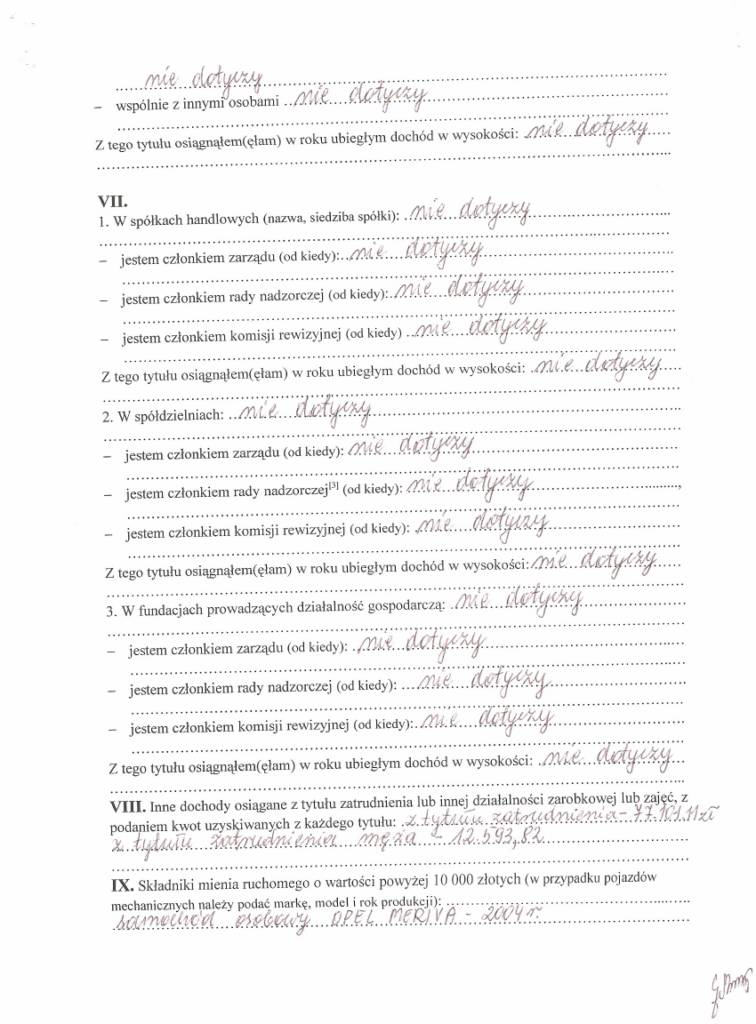 nie dotyczy
– wspólnie z innymi osobami nie dotyczy
Z tego tytułu osiągnąłem(ęłam) w roku ubiegłym dochód w wysokości: nie dotyczy
VII.
1. W spółkach handlowych (nazwa, siedziba spółki): nie dotyczy
– jestem członkiem zarządu (od kiedy): nie dotyczy
– jestem członkiem rady nadzorczej (od kiedy): nie dotyczy
– jestem członkiem komisji rewizyjnej (od kiedy) nie dotyczy
Z tego tytułu osiągnąłem(ęłam) w roku ubiegłym dochód w wysokości: nie dotyczy
2. W spółdzielniach: nie dotyczy
– jestem członkiem zarządu (od kiedy): nie dotyczy
– jestem członkiem rady nadzorczej[3] (od kiedy): nie dotyczy,
– jestem członkiem komisji rewizyjnej (od kiedy): nie dotyczy
Z tego tytułu osiągnąłem(ęłam) w roku ubiegłym dochód w wysokości: nie dotyczy
3. W fundacjach prowadzących działalność gospodarczą: nie dotyczy
– jestem członkiem zarządu (od kiedy): nie dotyczy
– jestem członkiem rady nadzorczej (od kiedy): nie dotyczy
– jestem członkiem komisji rewizyjnej (od kiedy): nie dotyczy
Z tego tytułu osiągnąłem(ęłam) w roku ubiegłym dochód w wysokości: nie dotyczy
VIII. Inne dochody osiągane z tytułu zatrudnienia lub innej działalności zarobkowej lub zajęć, z
podaniem kwot uzyskiwanych z każdego tytułu: z tytułu zatrudnienia – 77.101,11 zł
z tytułu zatrudnienia męża – 12.593,82
IX. Składniki mienia ruchomego o wartości powyżej 10 000 złotych (w przypadku pojazdów
mechanicznych należy podać markę, model i rok produkcji):
samochód osobowy OPEL MERIVA – 2004 r.